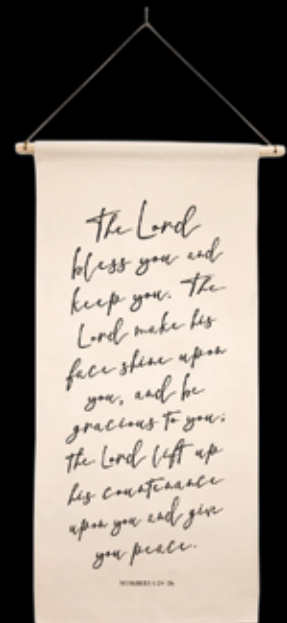 The Lord
bless you and
keep you. The
Lord make his
face shine upon
you, and be
gracious to you;
the Lord lift up
his countenance
upon you and give
you peace.
NUMBERS 6:24-26